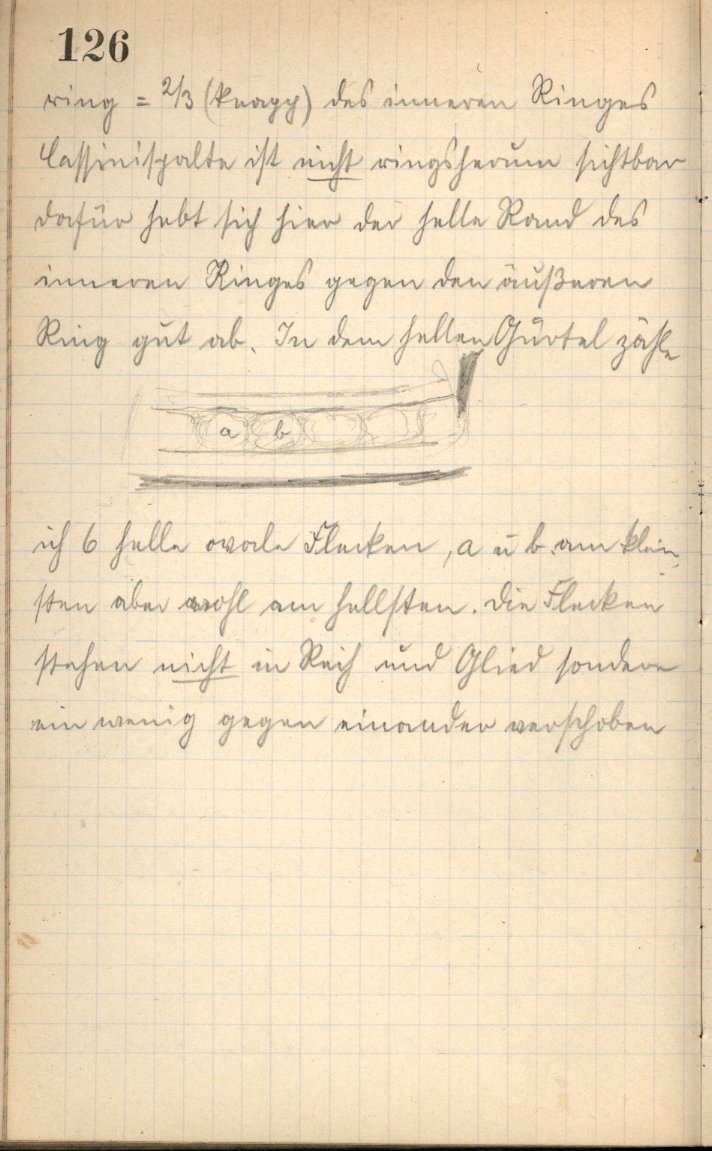 126
ring = 2/3 (knapp) des inneren Ringes
Cassinispalte ist nicht ringsherum sichtbar
dafür hebt sich hier der helle Rand des
inneren Ringes gegen den äußeren
Ring gut ab. In dem hellen Gürtel zähle
a b
ich 6 helle ovale Flecken, a u b am klein-
sten aber wohl am hellsten. Die Flecken
stehen nicht in Reih und Glied sondern
ein wenig gegen einander verschoben